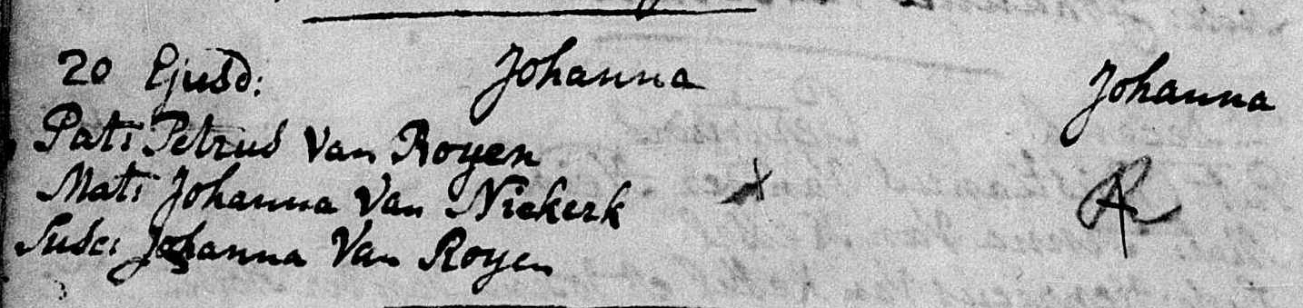 20 Ejusd: Johanna Johanna
Pat: Petrus Van Royen
Mat: Johanna Van Niekerk
Susc: Johanna Van Royen